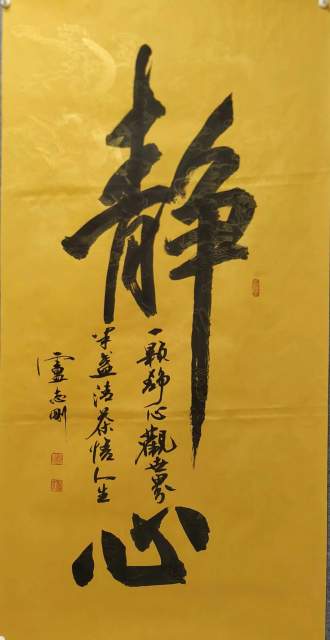 静
心
一顆静心觀世界
半盏清茶悟人生
盧志刚